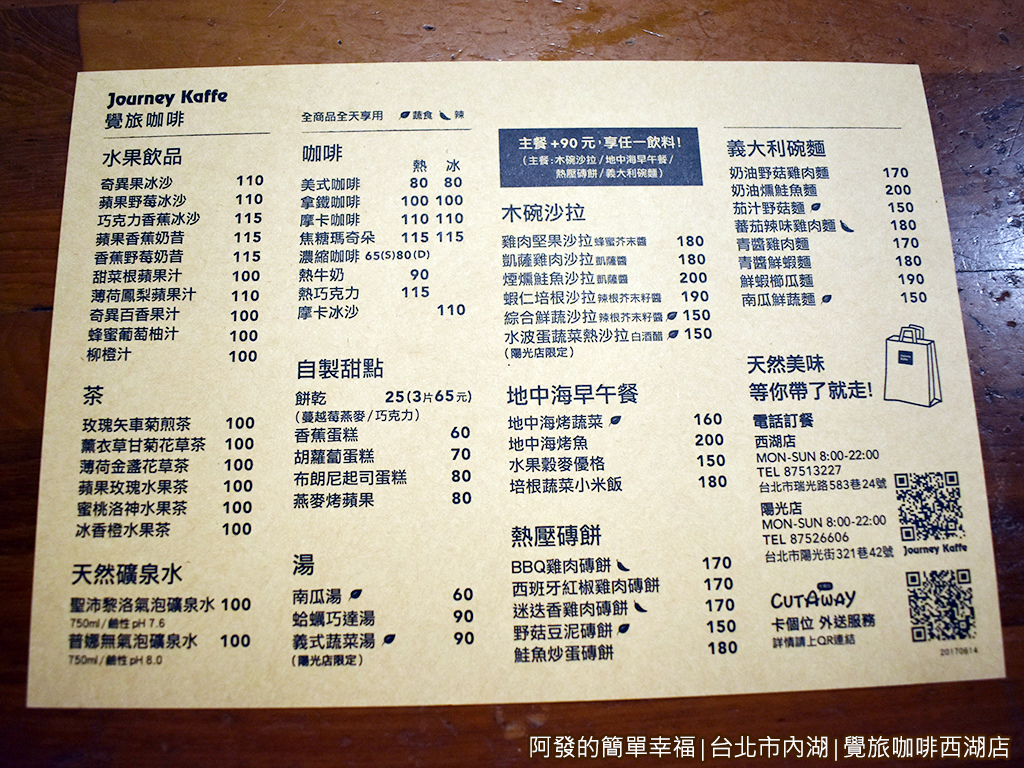 Journey Kaffe
覺旅咖啡
水果飲品
奇異果冰沙 110
蘋果野莓冰沙 110
巧克力香蕉冰沙 115
蘋果香蕉奶昔 115
香蕉野莓奶昔 115
甜菜根蘋果汁 100
薄荷鳳梨蘋果汁 110
奇異百香果汁 100
蜂蜜葡萄柚汁 100
柳橙汁 100
茶
玫瑰矢車菊煎茶 100
薰衣草甘菊花草茶 100
薄荷金盞花草茶 100
蘋果玫瑰水果茶 100
蜜桃洛神水果茶 100
冰香橙水果茶 100
天然礦泉水
聖沛黎洛氣泡礦泉水 100
750ml/鹼性 pH 7.6
普娜無氣泡礦泉水 100
750ml/鹼性 pH 8.0
全商品全天享用 蔬食 辣
咖啡
熱 冰
美式咖啡 80 80
拿鐵咖啡 100 100
摩卡咖啡 110 110
焦糖瑪奇朵 115 115
濃縮咖啡 65(S)80(D)
熱牛奶 90
熱巧克力 115
摩卡冰沙 110
自製甜點
餅乾 25(3片65元)
(蔓越莓燕麥/巧克力)
香蕉蛋糕 60
胡蘿蔔蛋糕 70
布朗尼起司蛋糕 80
燕麥烤蘋果 80
湯
南瓜湯 60
蛤蠣巧達湯 90
義式蔬菜湯 90
(陽光店限定)
主餐 +90 元,享任一飲料!
(主餐:木碗沙拉/地中海早午餐/
熱壓磚餅/義大利碗麵)
木碗沙拉
雞肉堅果沙拉 蜂蜜芥末醬 180
凱薩雞肉沙拉 凱薩醬 180
煙燻鮭魚沙拉 凱薩醬 200
蝦仁培根沙拉 辣根芥末籽醬 190
綜合鮮蔬沙拉 辣根芥末籽醬 150
水波蛋蔬菜熱沙拉 白酒醋 150
(陽光店限定)
地中海早午餐
地中海烤蔬菜 160
地中海烤魚 200
水果穀麥優格 150
培根蔬菜小米飯 180
熱壓磚餅
BBQ雞肉磚餅 170
西班牙紅椒雞肉磚餅 170
迷迭香雞肉磚餅 170
野菇豆泥磚餅 150
鮭魚炒蛋磚餅 180
義大利碗麵
奶油野菇雞肉麵 170
奶油燻鮭魚麵 200
茄汁野菇麵 150
蕃茄辣味雞肉麵 180
青醬雞肉麵 170
青醬鮮蝦麵 180
鮮蝦櫛瓜麵 190
南瓜鮮蔬麵 150
天然美味
等你帶了就走!
電話訂餐
西湖店
MON-SUN 8:00-22:00
TEL 87513227
台北市瑞光路583巷24號
陽光店
MON-SUN 8:00-22:00
TEL 87526606
台北市陽光街321巷42號
Journey Kaffe
CUTAWAY
卡個位 外送服務
詳情請上QR連結
20170614
阿發的簡單幸福|台北市內湖|覺旅咖啡西湖店